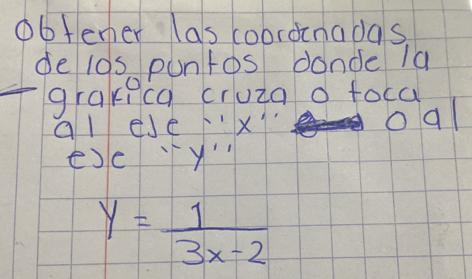 Obtener las coordenadas
de los puntos donde la
grafica cruza o toca
al eje "x" o al
eje "y"
y = 1 / (3x-2)